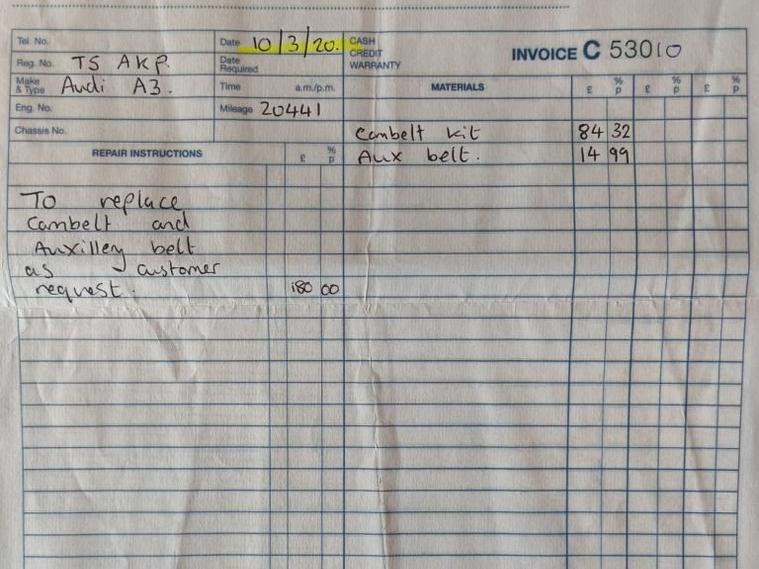 Tel. No.
Date 10/3/20. CASH
CREDIT
WARRANTY
INVOICE C 53010
Reg. No. TS AKP.
Date Required
Make & Type Audi A3.
Time a.m./p.m.
MATERIALS £ % p £ % p £ % p
Eng. No.
Mileage 20441
Chassis No.
Cambelt kit 84 32
REPAIR INSTRUCTIONS £ % p
Aux belt. 14 99
To replace
Cambelt and
Auxillery belt
as customer
request. 180 00